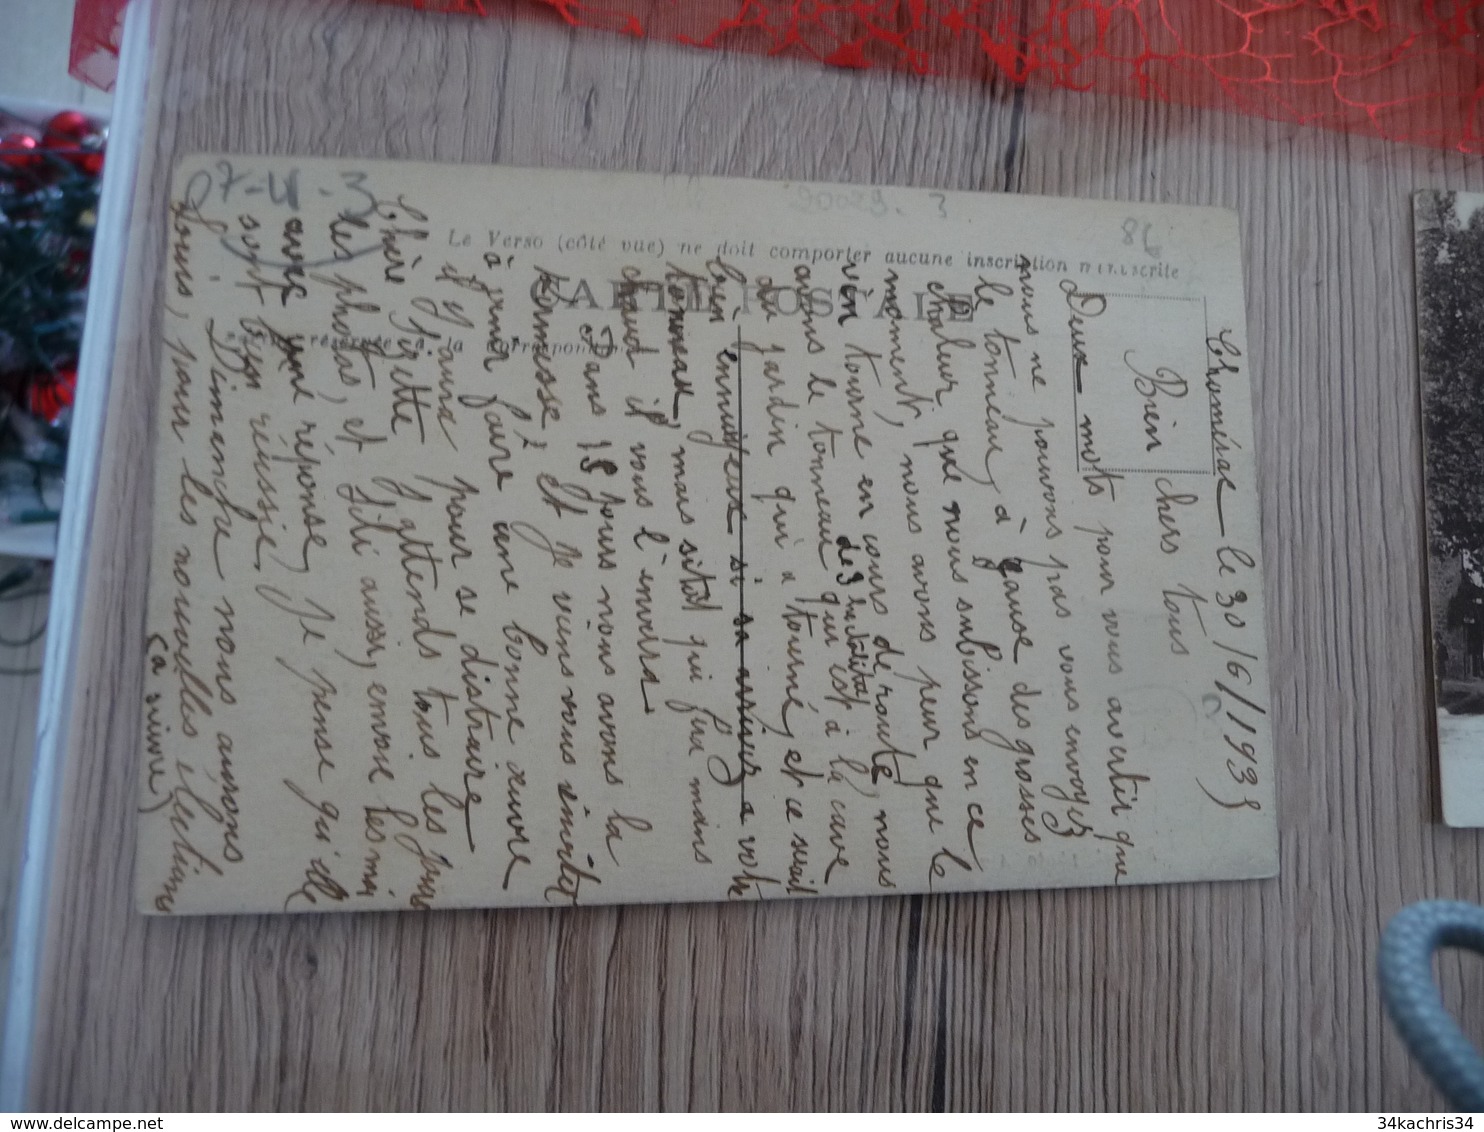 07-U-3
20029. 3
86
Le Verso (côté vue) ne doit comporter aucune inscription manuscrite
CARTE POSTALE
réservée à la correspondance
Choméras le 30/6/1935
Bien chers tous
Deux mots pour vous avertir que
nous ne pouvons pas vous envoyez
le tonneau, à cause des grosses
chaleur, que nous subissons en ce
moment, nous avons peur que le
vin tourne en cours de route, nous
avons le tonneau de 3 hectolitre qui est à la cave
du jardin qui a tourné, et ce serait
bien ennuyeux si sa arriver a votre
tonneau, mais sitôt qui feu moins
chaud il vous l'enverra
Dans 15 jours nous avons la
Kermesse, et je viens vous invitez
à venir faire une bonne œuvre
il y aura pour se distraire
Chère Ginette J'attends tous les jours
les photos, et Fifi aussi, envoie les moi
avec une réponse, je pense qu'elle
sont bien réussie.
Dimanche nous aurons
Louis, pour les nouvelles élections
(a suivre)
34kachris34
34kachris34